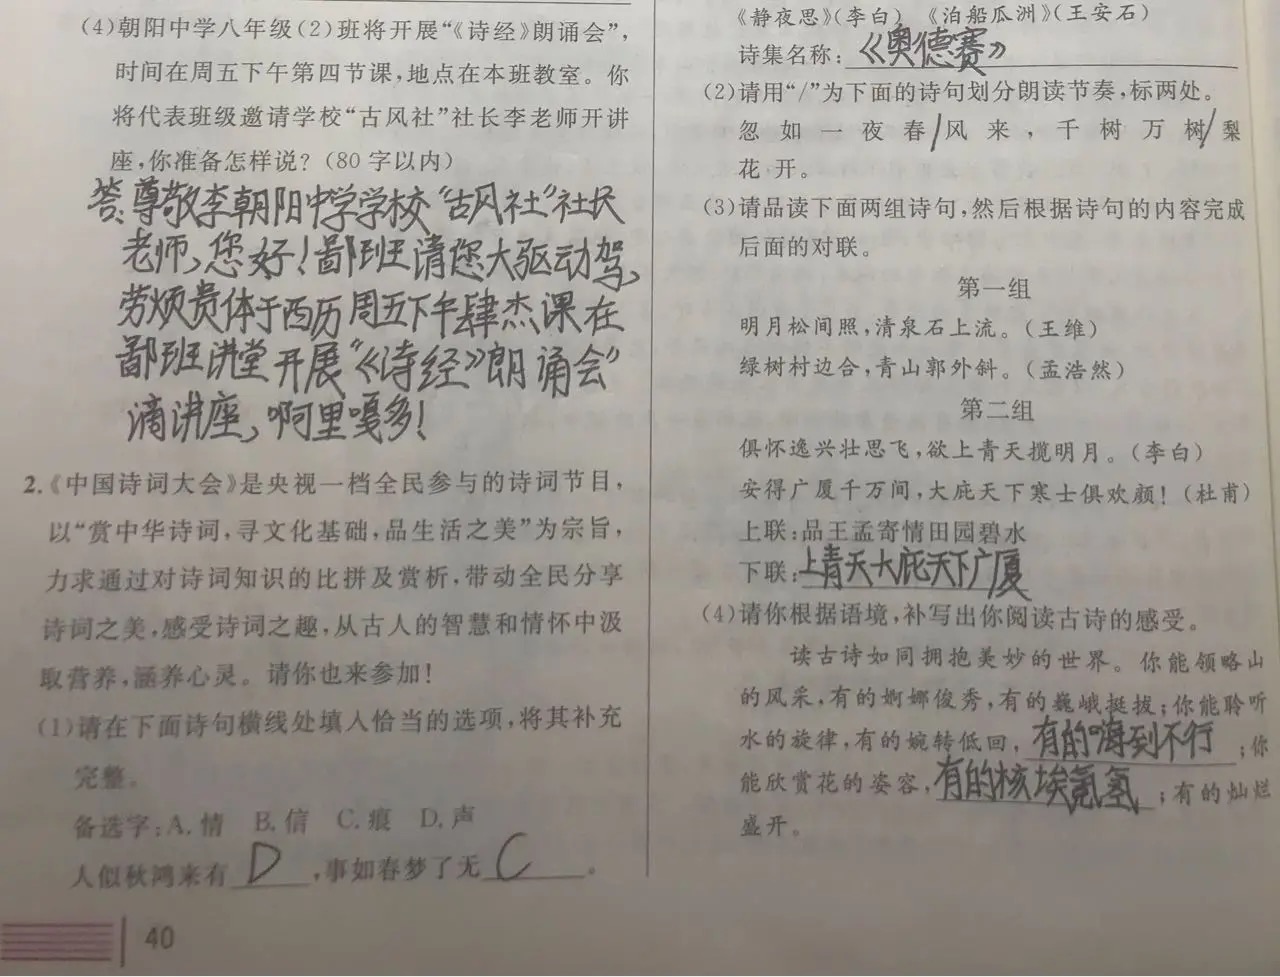 (4)朝阳中学八年级(2)班将开展“《诗经》朗诵会”,
时间在周五下午第四节课,地点在本班教室。你
将代表班级邀请学校“古风社”社长李老师开讲
座,你准备怎样说?(80字以内)
答:尊敬李朝阳中学学校“古风社”社长
老师,您好!鄙班请您大驱动驾,
劳烦贵体于西历周五下午肆杰课在
鄙班讲堂开展“《诗经》朗诵会”
滴讲座,啊里嘎多!
2.《中国诗词大会》是央视一档全民参与的诗词节目,
以“赏中华诗词,寻文化基础,品生活之美”为宗旨,
力求通过对诗词知识的比拼及赏析,带动全民分享
诗词之美,感受诗词之趣,从古人的智慧和情怀中汲
取营养,涵养心灵。请你也来参加!
(1)请在下面诗句横线处填入恰当的选项,将其补充
完整。
备选字:A.情 B.信 C.痕 D.声
人似秋鸿来有D,事如春梦了无C。
40
《静夜思》(李白) 《泊船瓜洲》(王安石)
诗集名称:《奥德赛》
(2)请用“/”为下面的诗句划分朗读节奏,标两处。
忽如一夜春/风来,千树万树/梨
花开。
(3)请品读下面两组诗句,然后根据诗句的内容完成
后面的对联。
第一组
明月松间照,清泉石上流。(王维)
绿树村边合,青山郭外斜。(孟浩然)
第二组
俱怀逸兴壮思飞,欲上青天揽明月。(李白)
安得广厦千万间,大庇天下寒士俱欢颜!(杜甫)
上联:品王孟寄情田园碧水
下联:上青天大庇天下广厦
(4)请你根据语境,补写出你阅读古诗的感受。
读古诗如同拥抱美妙的世界。你能领略山
的风采,有的婀娜俊秀,有的巍峨挺拔;你能聆听
水的旋律,有的婉转低回,有的嗨到不行;你
能欣赏花的姿容,有的核埃氪氢;有的灿烂
盛开。